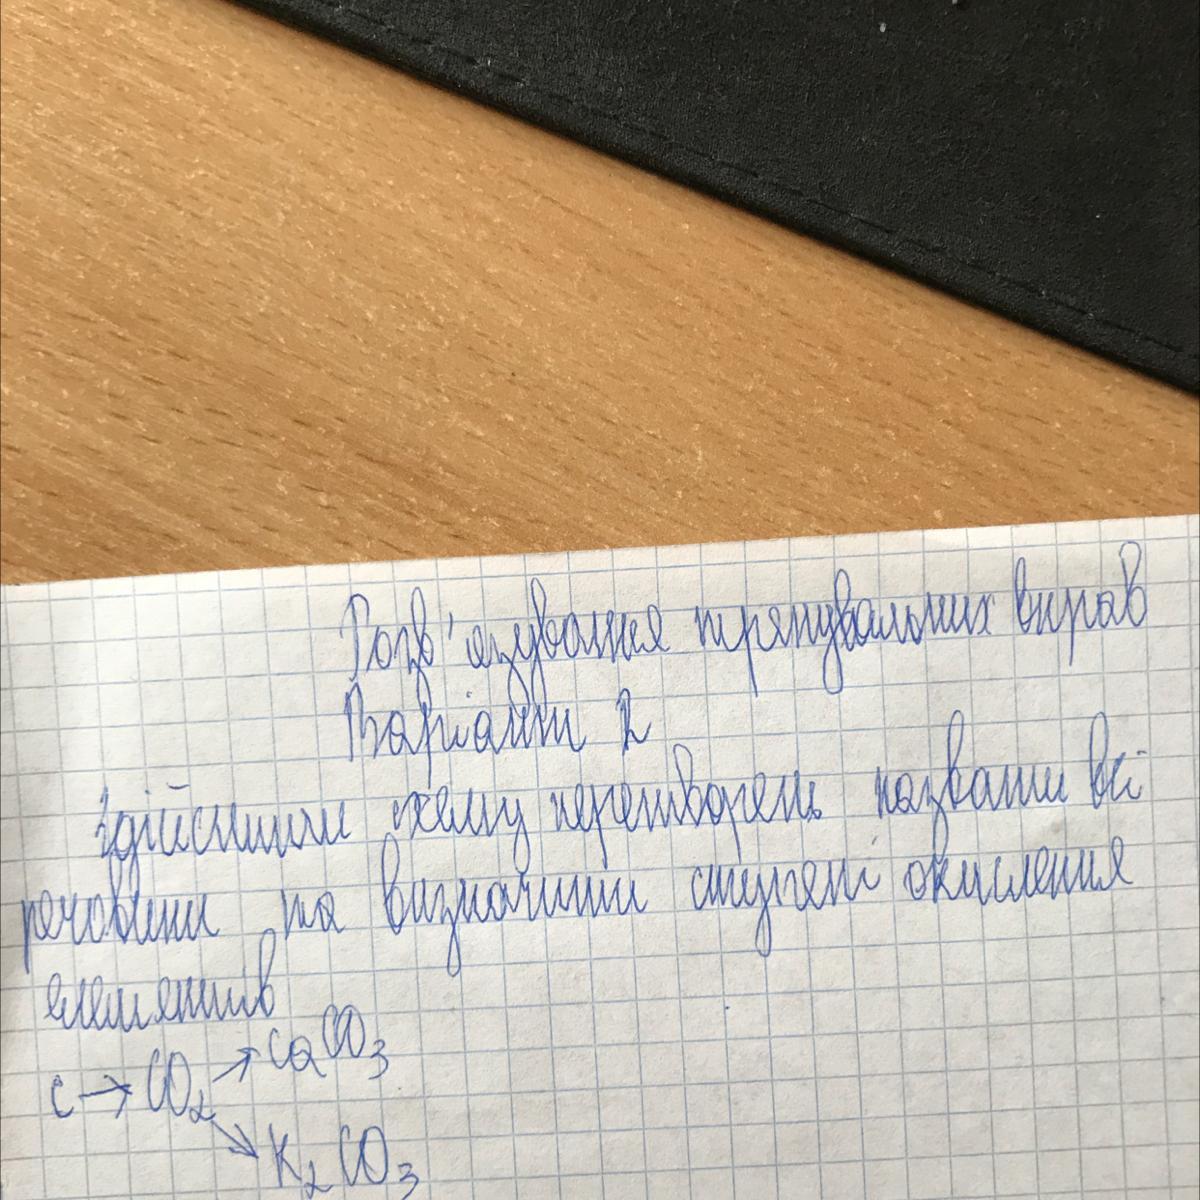 Розв'язування тренувальних вправ
Варіант 2
Здійснити схему перетворень назвати всі
речовини та визначити ступені окислення
елементів
C → CO₂ ↗ CaCO₃
↘ K₂CO₃